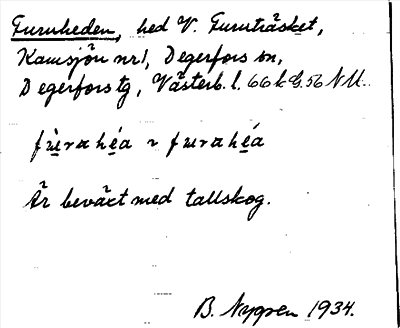 Furuheden, hed V. Furuträsket,
Kamsjön nr 1, Degerfors sn,
Degerfors tg, Västerb. l. 66 k G. 56 NU.
fùrahéa ~ furahéa
Är beväxt med tallskog.
B. Nygren 1934.